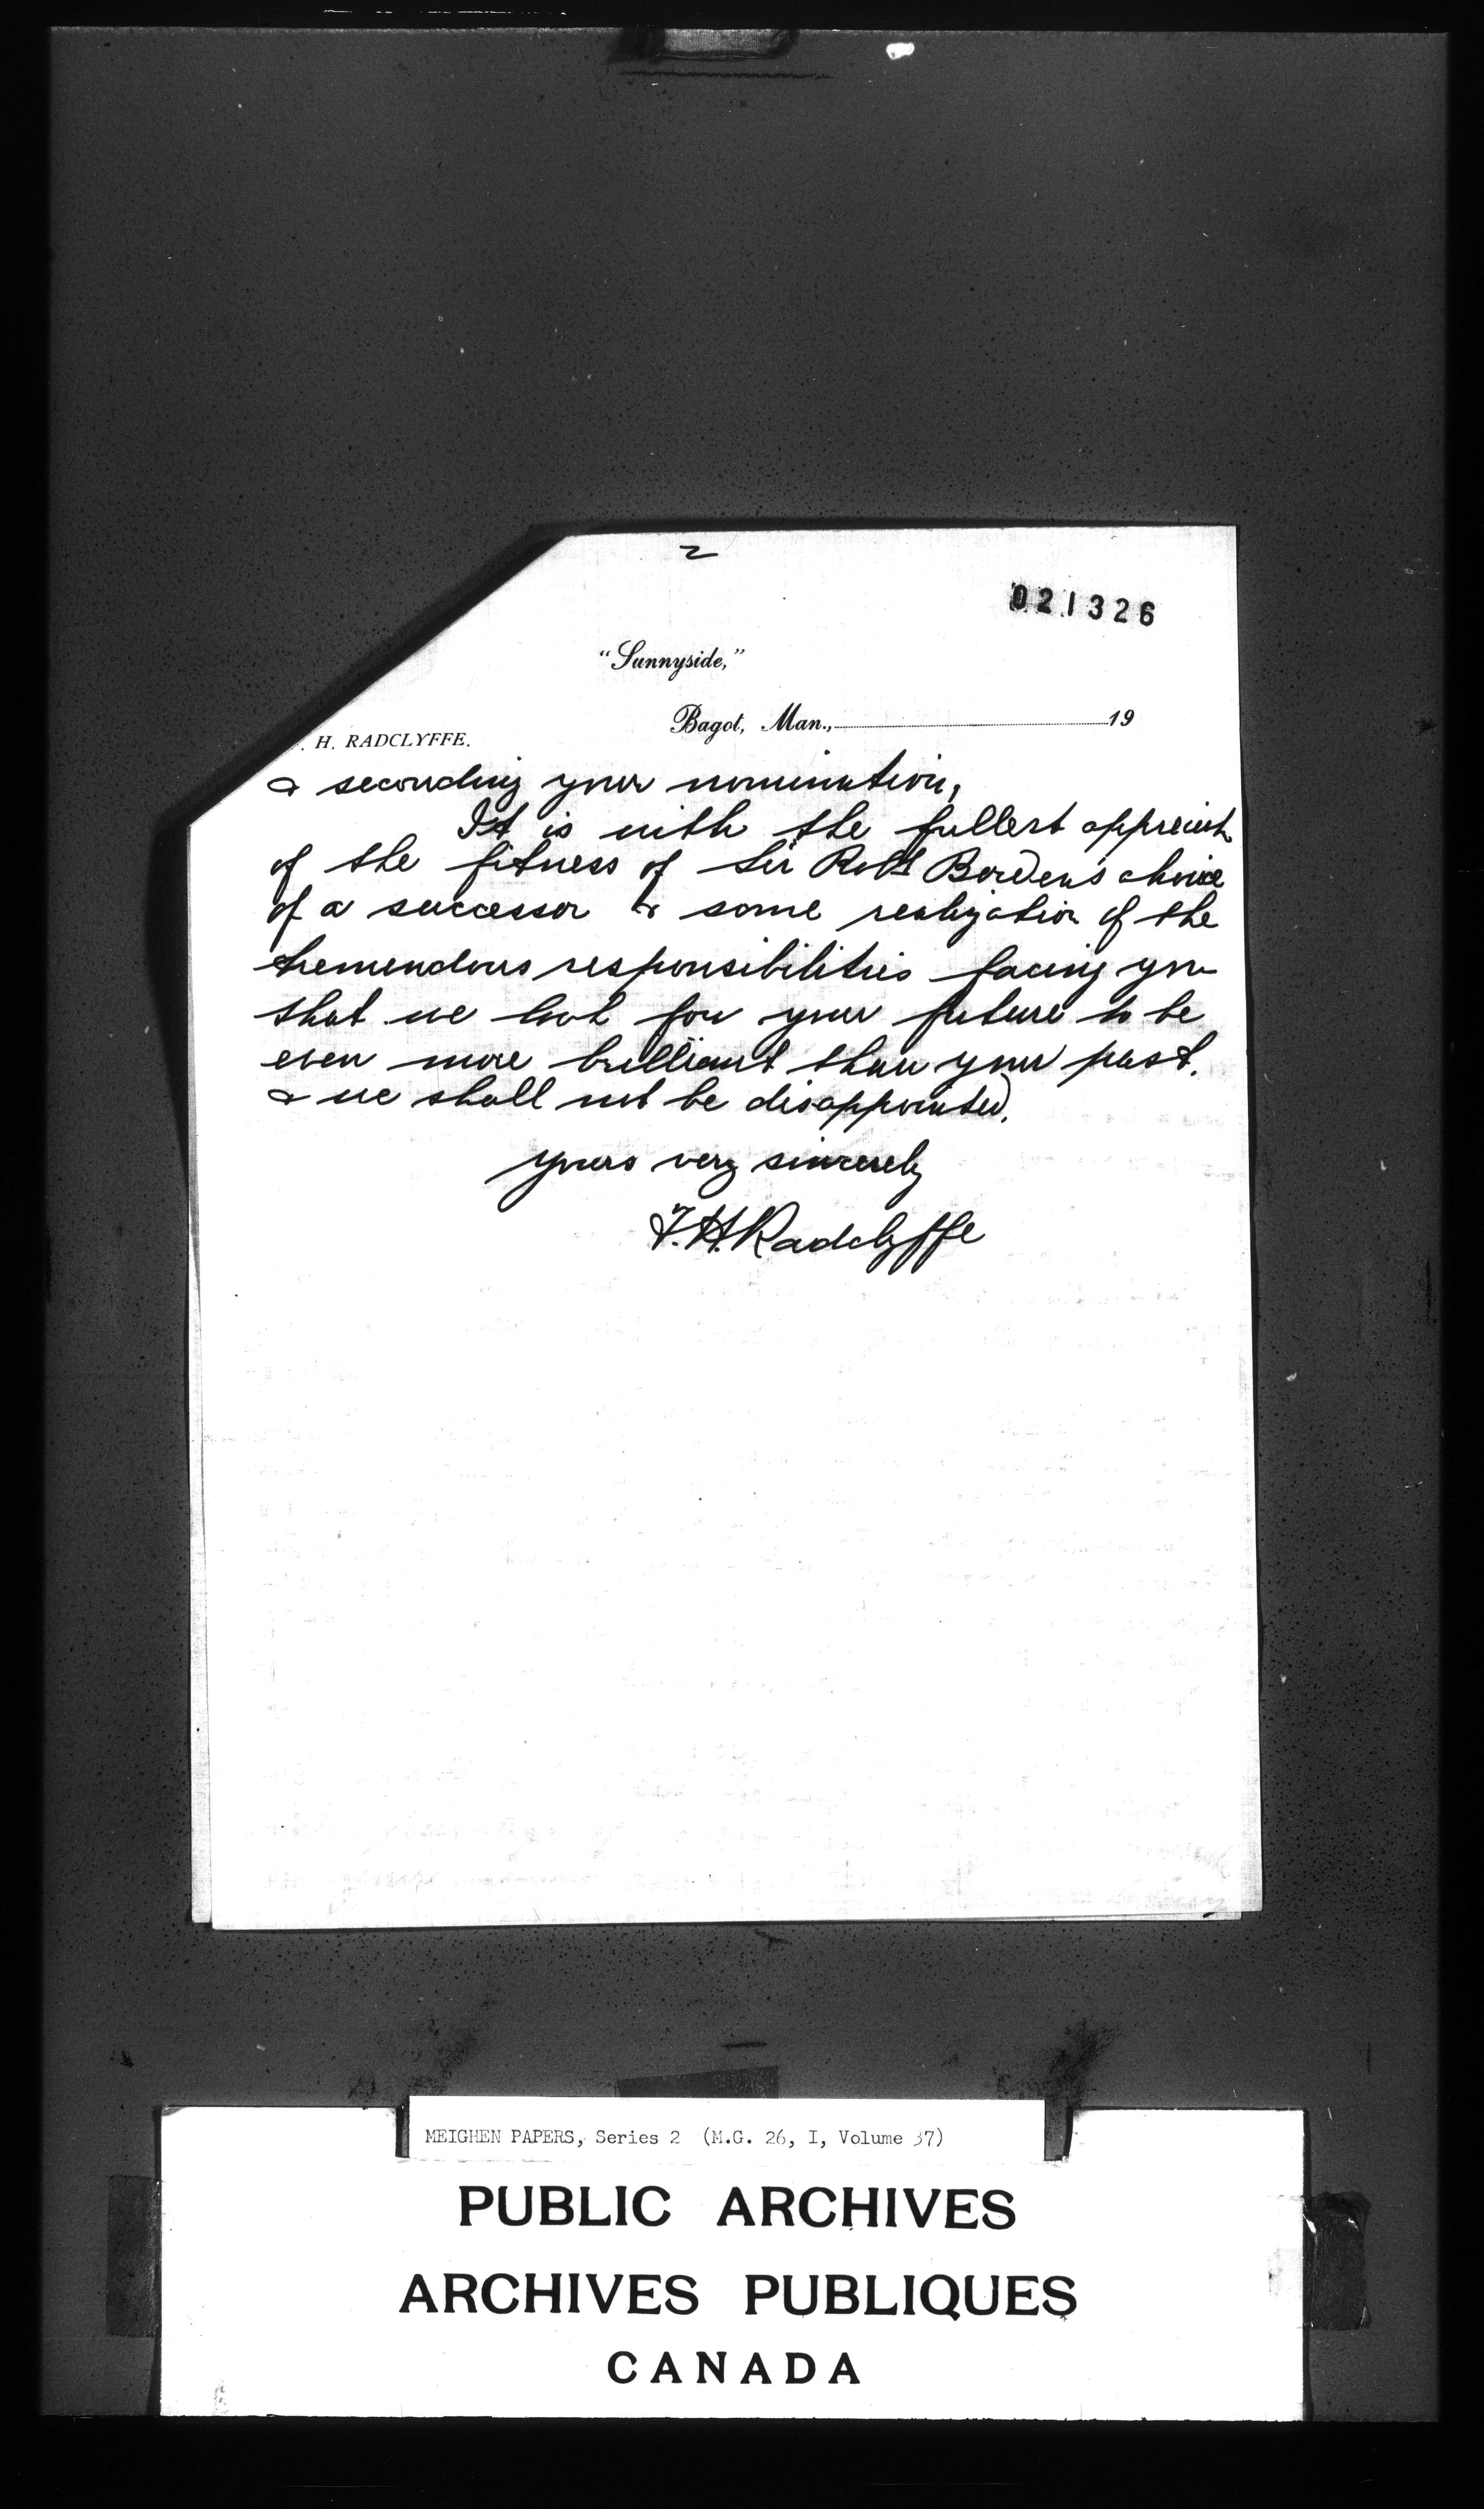 2
021326
"Sunnyside,"
Bagot, Man., 19
. H. RADCLYFFE.
& seconding your nomination,
It is with the fullest appreciat
of the fitness of Sir Robt Borden's choice
of a successor & some realization of the
tremendous responsibilities facing you
that we look for your future to be
even more brilliant than your past.
& we shall not be disappointed.
Yours very sincerely
F. H. Radclyffe
MEIGHEN PAPERS, Series 2 (M.G. 26, I, Volume 37)
PUBLIC ARCHIVES
ARCHIVES PUBLIQUES
CANADA